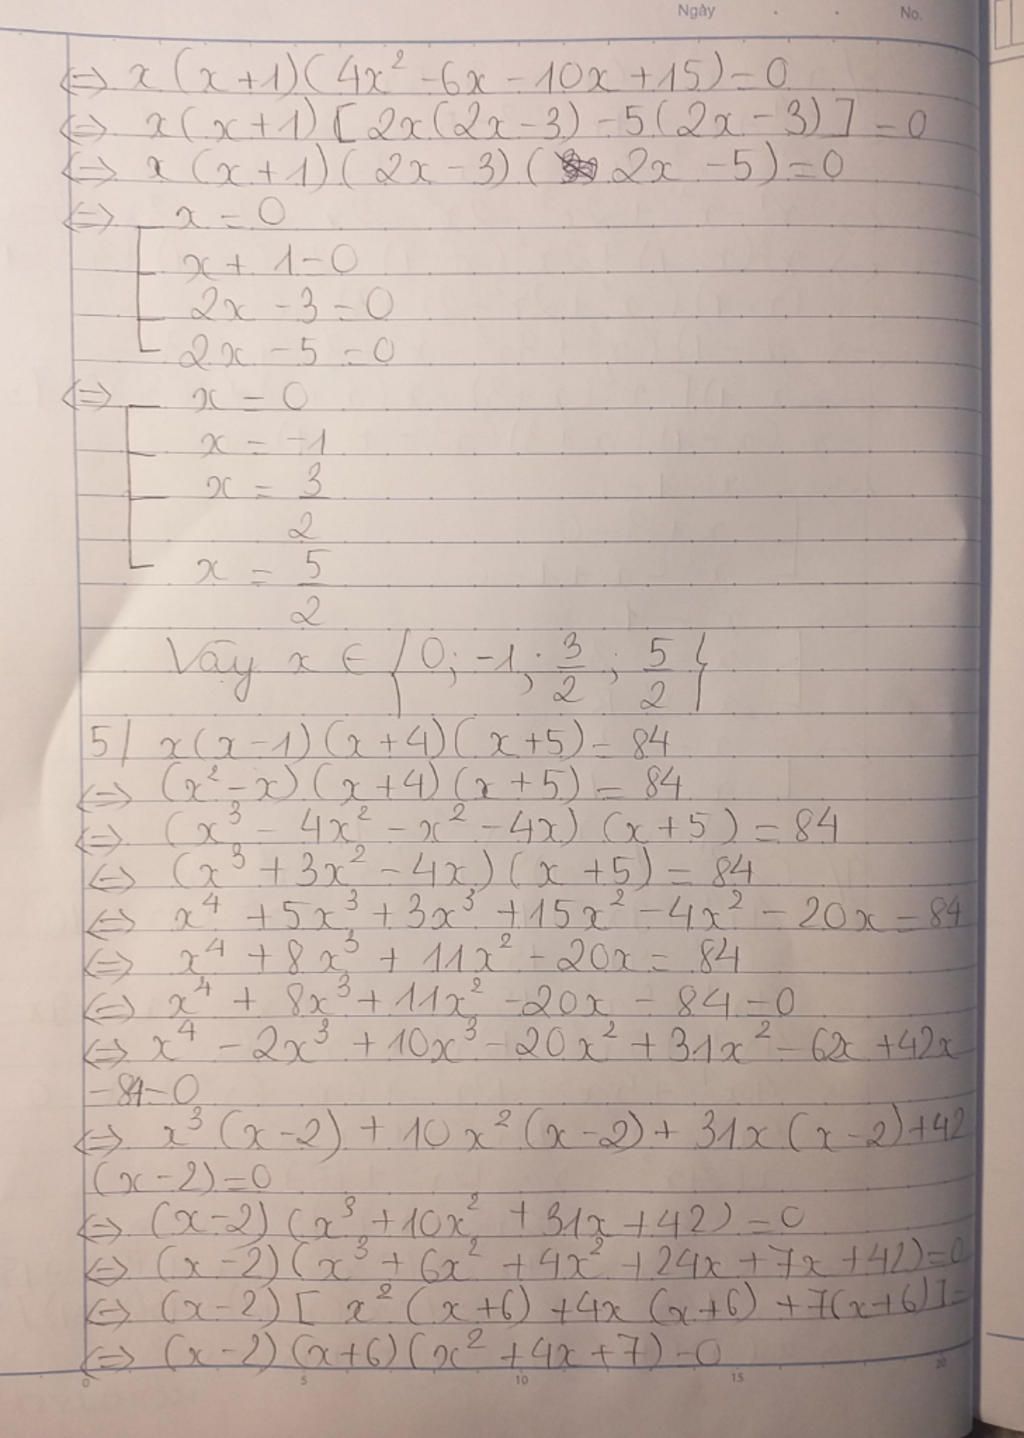 Ngày . . No.
⇔ x(x+1)(4x² - 6x - 10x + 15) = 0
⇔ x(x+1)[2x(2x-3) - 5(2x-3)] = 0
⇔ x(x+1)(2x-3)(2x-5) = 0
⇔ x = 0
x + 1 = 0
2x - 3 = 0
2x - 5 = 0
⇔ x = 0
x = -1
x = 3/2
x = 5/2
Vậy x ∈ {0; -1; 3/2; 5/2}
5/ x(x-1)(x+4)(x+5) = 84
⇔ (x² - x)(x+4)(x+5) = 84
⇔ (x³ - 4x² - x² - 4x)(x+5) = 84
⇔ (x³ + 3x² - 4x)(x+5) = 84
⇔ x⁴ + 5x³ + 3x³ + 15x² - 4x² - 20x = 84
⇔ x⁴ + 8x³ + 11x² - 20x = 84
⇔ x⁴ + 8x³ + 11x² - 20x - 84 = 0
⇔ x⁴ - 2x³ + 10x³ - 20x² + 31x² - 62x + 42x
- 84 = 0
⇔ x³(x-2) + 10x²(x-2) + 31x(x-2) + 42
(x-2) = 0
⇔ (x-2)(x³ + 10x² + 31x + 42) = 0
⇔ (x-2)(x³ + 6x² + 4x² + 24x + 7x + 42) = 0
⇔ (x-2)[x²(x+6) + 4x(x+6) + 7(x+6)] =
⇔ (x-2)(x+6)(x² + 4x + 7) = 0
0 5 10 15 20